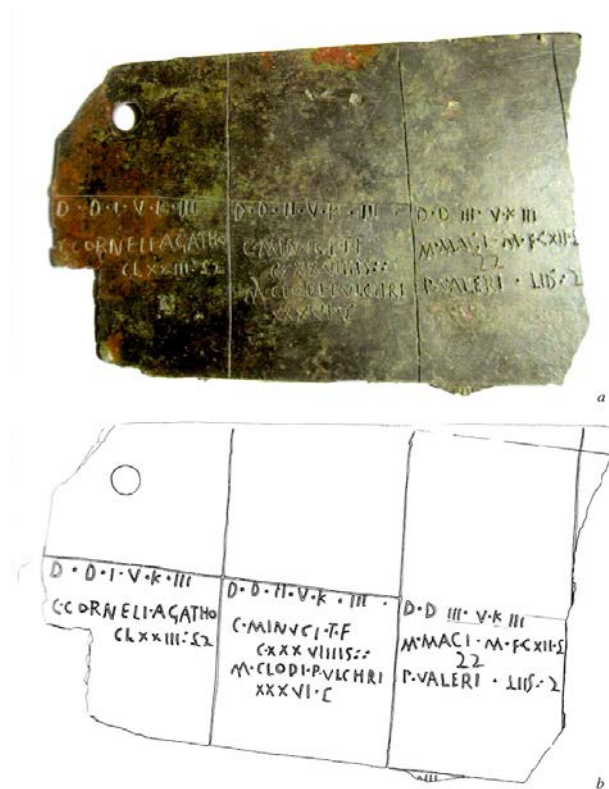 D · D · I · V · K · III
CORNELI · AGATHO
D · D · II · V · K · III ·
C · MINVCI · T · F
M · CLODI · PVLCHRI
D · D III · V · K III
M · MACI · M · F · CXII · Σ
22
P · VALERI · ΣIIS : 2
a
D · D · I · V · K · III
C · CORNELI · AGATHO
CLXXIII : Σ2
D · D · II · V · K · III ·
C · MINVCI · T · F
CXXXVIIIIS : :
M · CLODI · PVLCHRI
XXXVI · Σ
D · D III · V · K III
M · MACI · M · F · CXII · Σ
22
P · VALERI · ΣIIS : 2
b